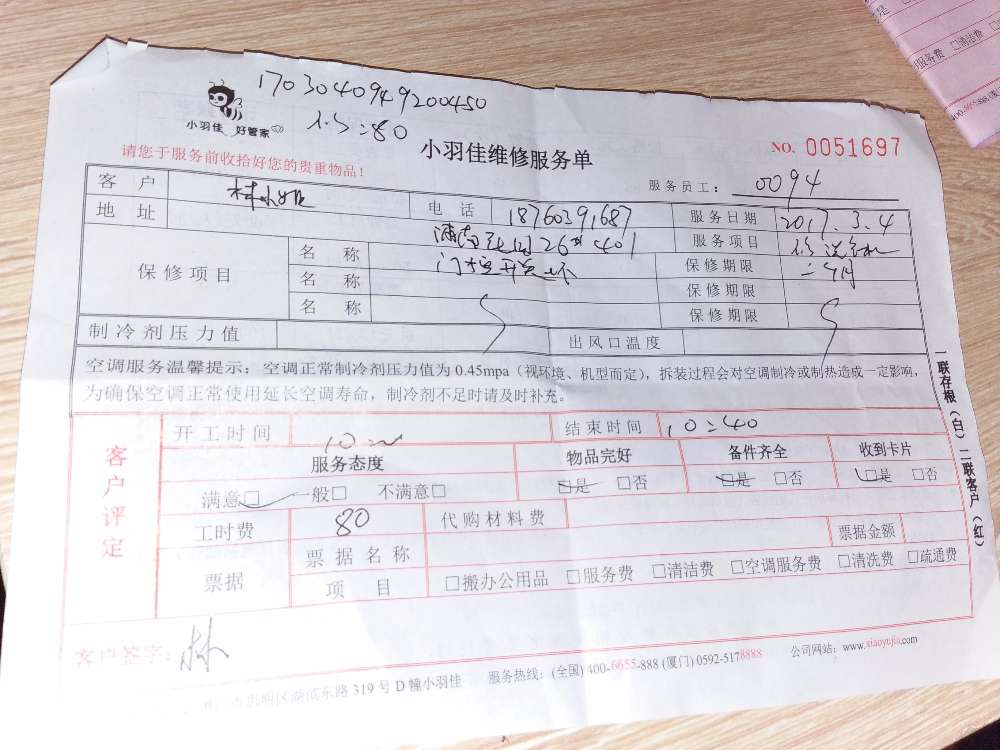 1703040949200450
小羽佳 好管家
:80
小羽佳维修服务单
NO. 0051697
请您于服务前收拾好您的贵重物品!
服务员工: 0094
客户 林小姐 电话 18760391687 服务日期 2017.3.4
地址 26# 401 服务项目
保修项目 名称 门控开关坏 保修期限 二个月
名称 保修期限
名称 保修期限
制冷剂压力值 出风口温度
空调服务温馨提示:空调正常制冷剂压力值为 0.45mpa(视环境、机型而定),拆装过程会对空调制冷或制热造成一定影响,
为确保空调正常使用延长空调寿命,制冷剂不足时请及时补充。
客户评定
开工时间 10:~ 结束时间 10:40
服务态度 物品完好 备件齐全 收到卡片
满意□ 一般□ 不满意□ □是 □否 □是 □否 □是 □否
工时费 80 代购材料费
票据 票据名称 票据金额
项目 □搬办公用品 □服务费 □清洁费 □空调服务费 □清洗费 □疏通费
客户签字: 林
东路 319 号 D 幢小羽佳 服务热线:(全国) 400-6655-888 (厦门) 0592-5178888 公司网站:www.xiaoyujia.com
一联存根(白) 二联客户(红)
是
服务费 □清洁费